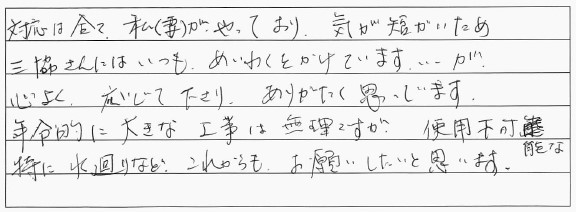 対応は全て、私(妻)が、やっており、気が短かいため
三協さんには いつも、めいわくをかけています、…が、
心よく、応じて下さり、ありがたく思っています。
年令的に大きな工事は無理ですが、使用不可能な
特に水廻りなど、これからも、お願いしたいと思います。